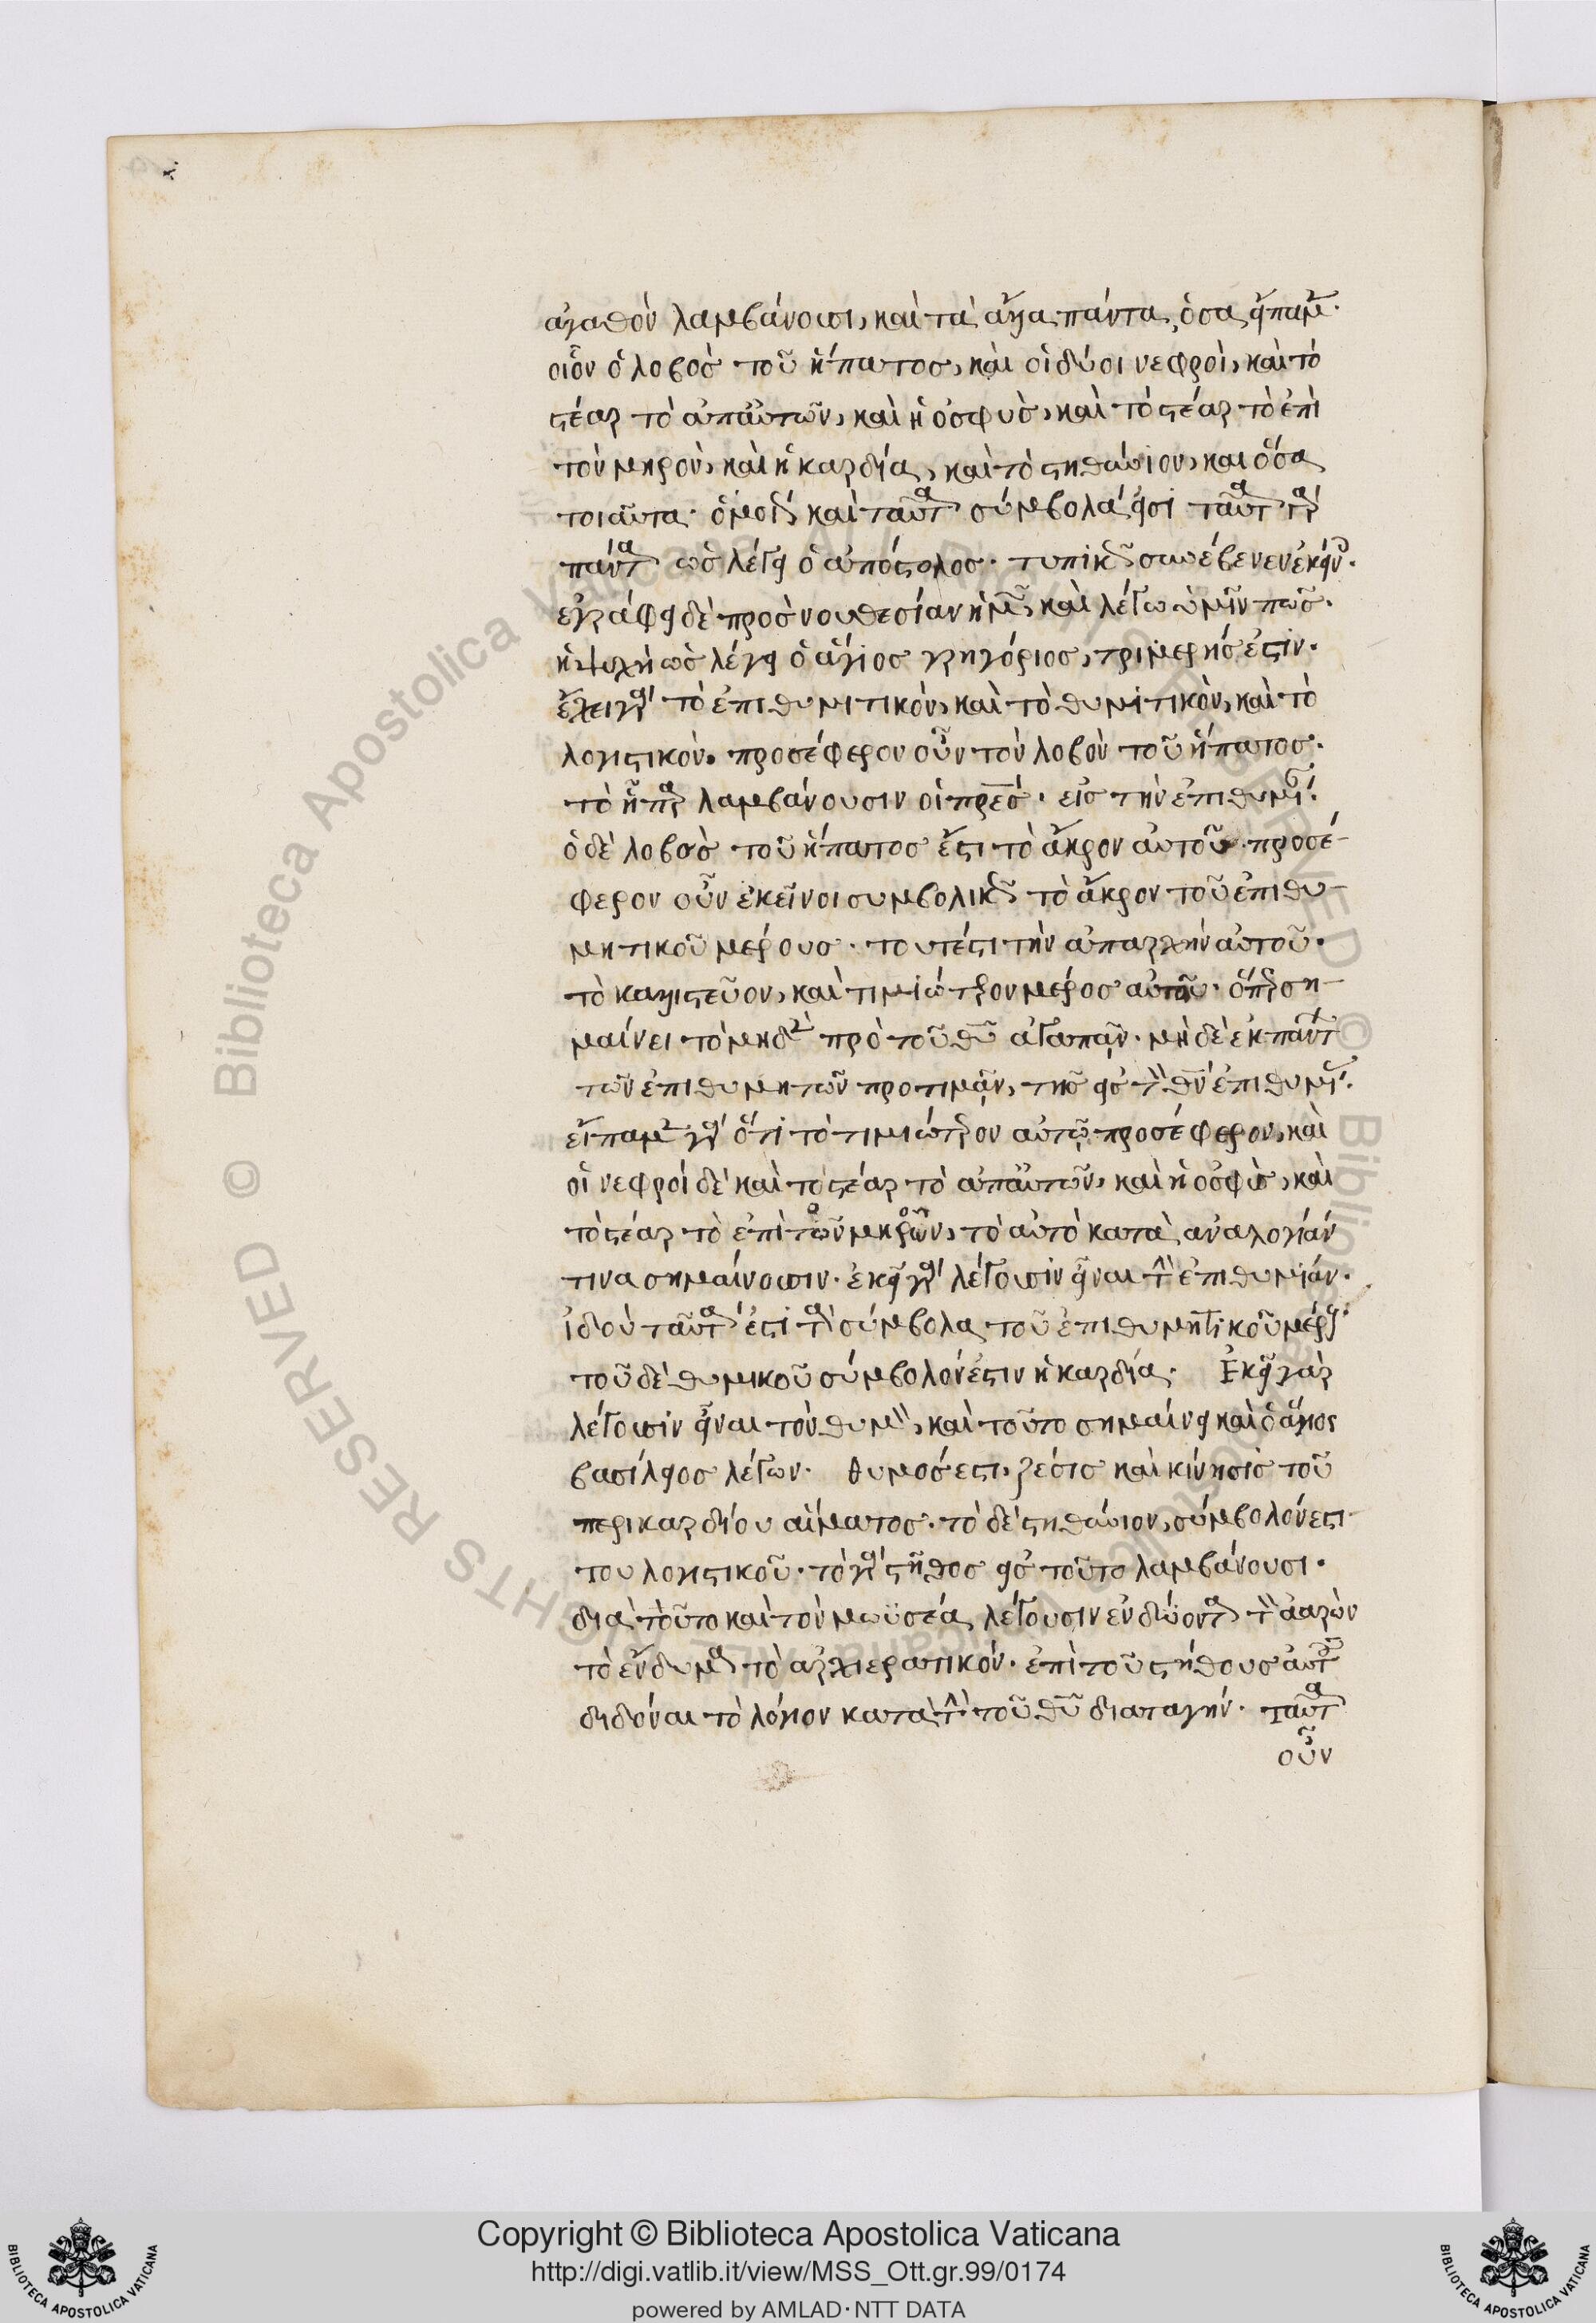 ἀγαθὸν λαμβάνουσι, καὶ τὰ ἄλλα πάντα, ὅσα εἴπαμεν·
οἷον ὁ λοβὸς τοῦ ἥπατος, καὶ οἱ δύοι νεφροὶ, καὶ τὸ
στέαρ τὸ ἀπ' αὐτῶν, καὶ ἡ ὀσφυὸς, καὶ τὸ στέαρ τὸ ἐπὶ
τὸν μηρὸν, καὶ ἡ καρδία, καὶ τὸ στηθύνιον, καὶ ὅσα
τοιαῦτα· ὁμοίως καὶ ταῦτα σύμβολά εἰσι ταῦτα γὰρ
πάντα ὡς λέγει ὁ ἀπόστολος· τυπικῶς συνέβενεν ἐκείνοις·
ἐγράφει δὲ πρὸς νουθεσίαν ἡμῶν, καὶ λέγω ὑμῖν πῶς·
ἡ ψυχὴ ὡς λέγει ὁ ἅγιος γρηγόριος, τριμερής ἐστιν·
ἔχει γὰρ τὸ ἐπιθυμιτικὸν, καὶ τὸ θυμιτικὸν, καὶ τὸ
λογιστικόν. προσέφερον οὖν τὸν λοβὸν τοῦ ἥπατος·
τὸ ἧπαρ λαμβάνουσιν οἱ πρες· εἰς τὴν ἐπιθυμίαν·
ὁ δὲ λοβὸς τοῦ ἥπατος ἔστι τὸ ἄκρον αὐτοῦ· προσέ-
φερον οὖν ἐκεῖνοι συμβολικῶς τὸ ἄκρον τοῦ ἐπιθυ-
μητικοῦ μέρους· τουτέστι τὴν ἀπαρχὴν αὐτοῦ·
τὸ καλλιστεῦον, καὶ τιμιώτερον μέρος αὐτοῦ· ὅπερ ση-
μαίνει τὸ μηδὲν πρὸ τοῦ θῦ ἀγαπᾶν· μὴ δὲ ἐκ πάντων
τῶν ἐπιθυμητῶν προτιμᾶν, τῆς εἰς τὸν θν ἐπιθυμίας·
εἴπαμεν γὰρ ὅτι τὸ τιμιώτερον αὐτῷ προσέφερον, καὶ
οἱ νεφροὶ δὲ καὶ τὸ στέαρ τὸ ἀπ' αὐτῶν, καὶ ἡ ὀσφὺς, καὶ
τὸ στέαρ τὸ ἐπὶ τῶν μηρῶν, τὸ αὐτὸ κατὰ ἀναλογίαν
τινα σημαίνουσιν· ἐκεῖ γὰρ λέγουσιν εἶναι τὴν ἐπιθυμίαν·
ἰδοὺ ταῦτα ἐστὶ τὰ σύμβολα τοῦ ἐπιθυμητικοῦ μέρους·
τοῦ δὲ θυμικοῦ σύμβολόν ἐστιν ἡ καρδία· Ἐκεῖ γὰρ
λέγουσιν εἶναι τὸν θυμὸν, καὶ τοῦτο σημαίνει καὶ ὁ ἅγιος
βασίλειος λέγων· θυμός ἐστι, ζέσις καὶ κίνησις τοῦ
περικαρδίου αἵματος· τὸ δὲ στηθύνιον, σύμβολόν ἐστι
του λογιστικοῦ· τὸ γὰρ στῆθος εἰς τοῦτο λαμβάνουσι·
διὰ τοῦτο καὶ τὸν μωϋσέα λέγουσιν ἐνδύοντα τὸν ἀαρὼν
τὸ ἔνδυμα τὸ ἀρχιερατικόν· ἐπὶ τοῦ στήθους αὐτοῦ
διδόναι τὸ λόγιον κατὰ τὴν τοῦ θῦ διαταγήν· ταῦτα
οὖν